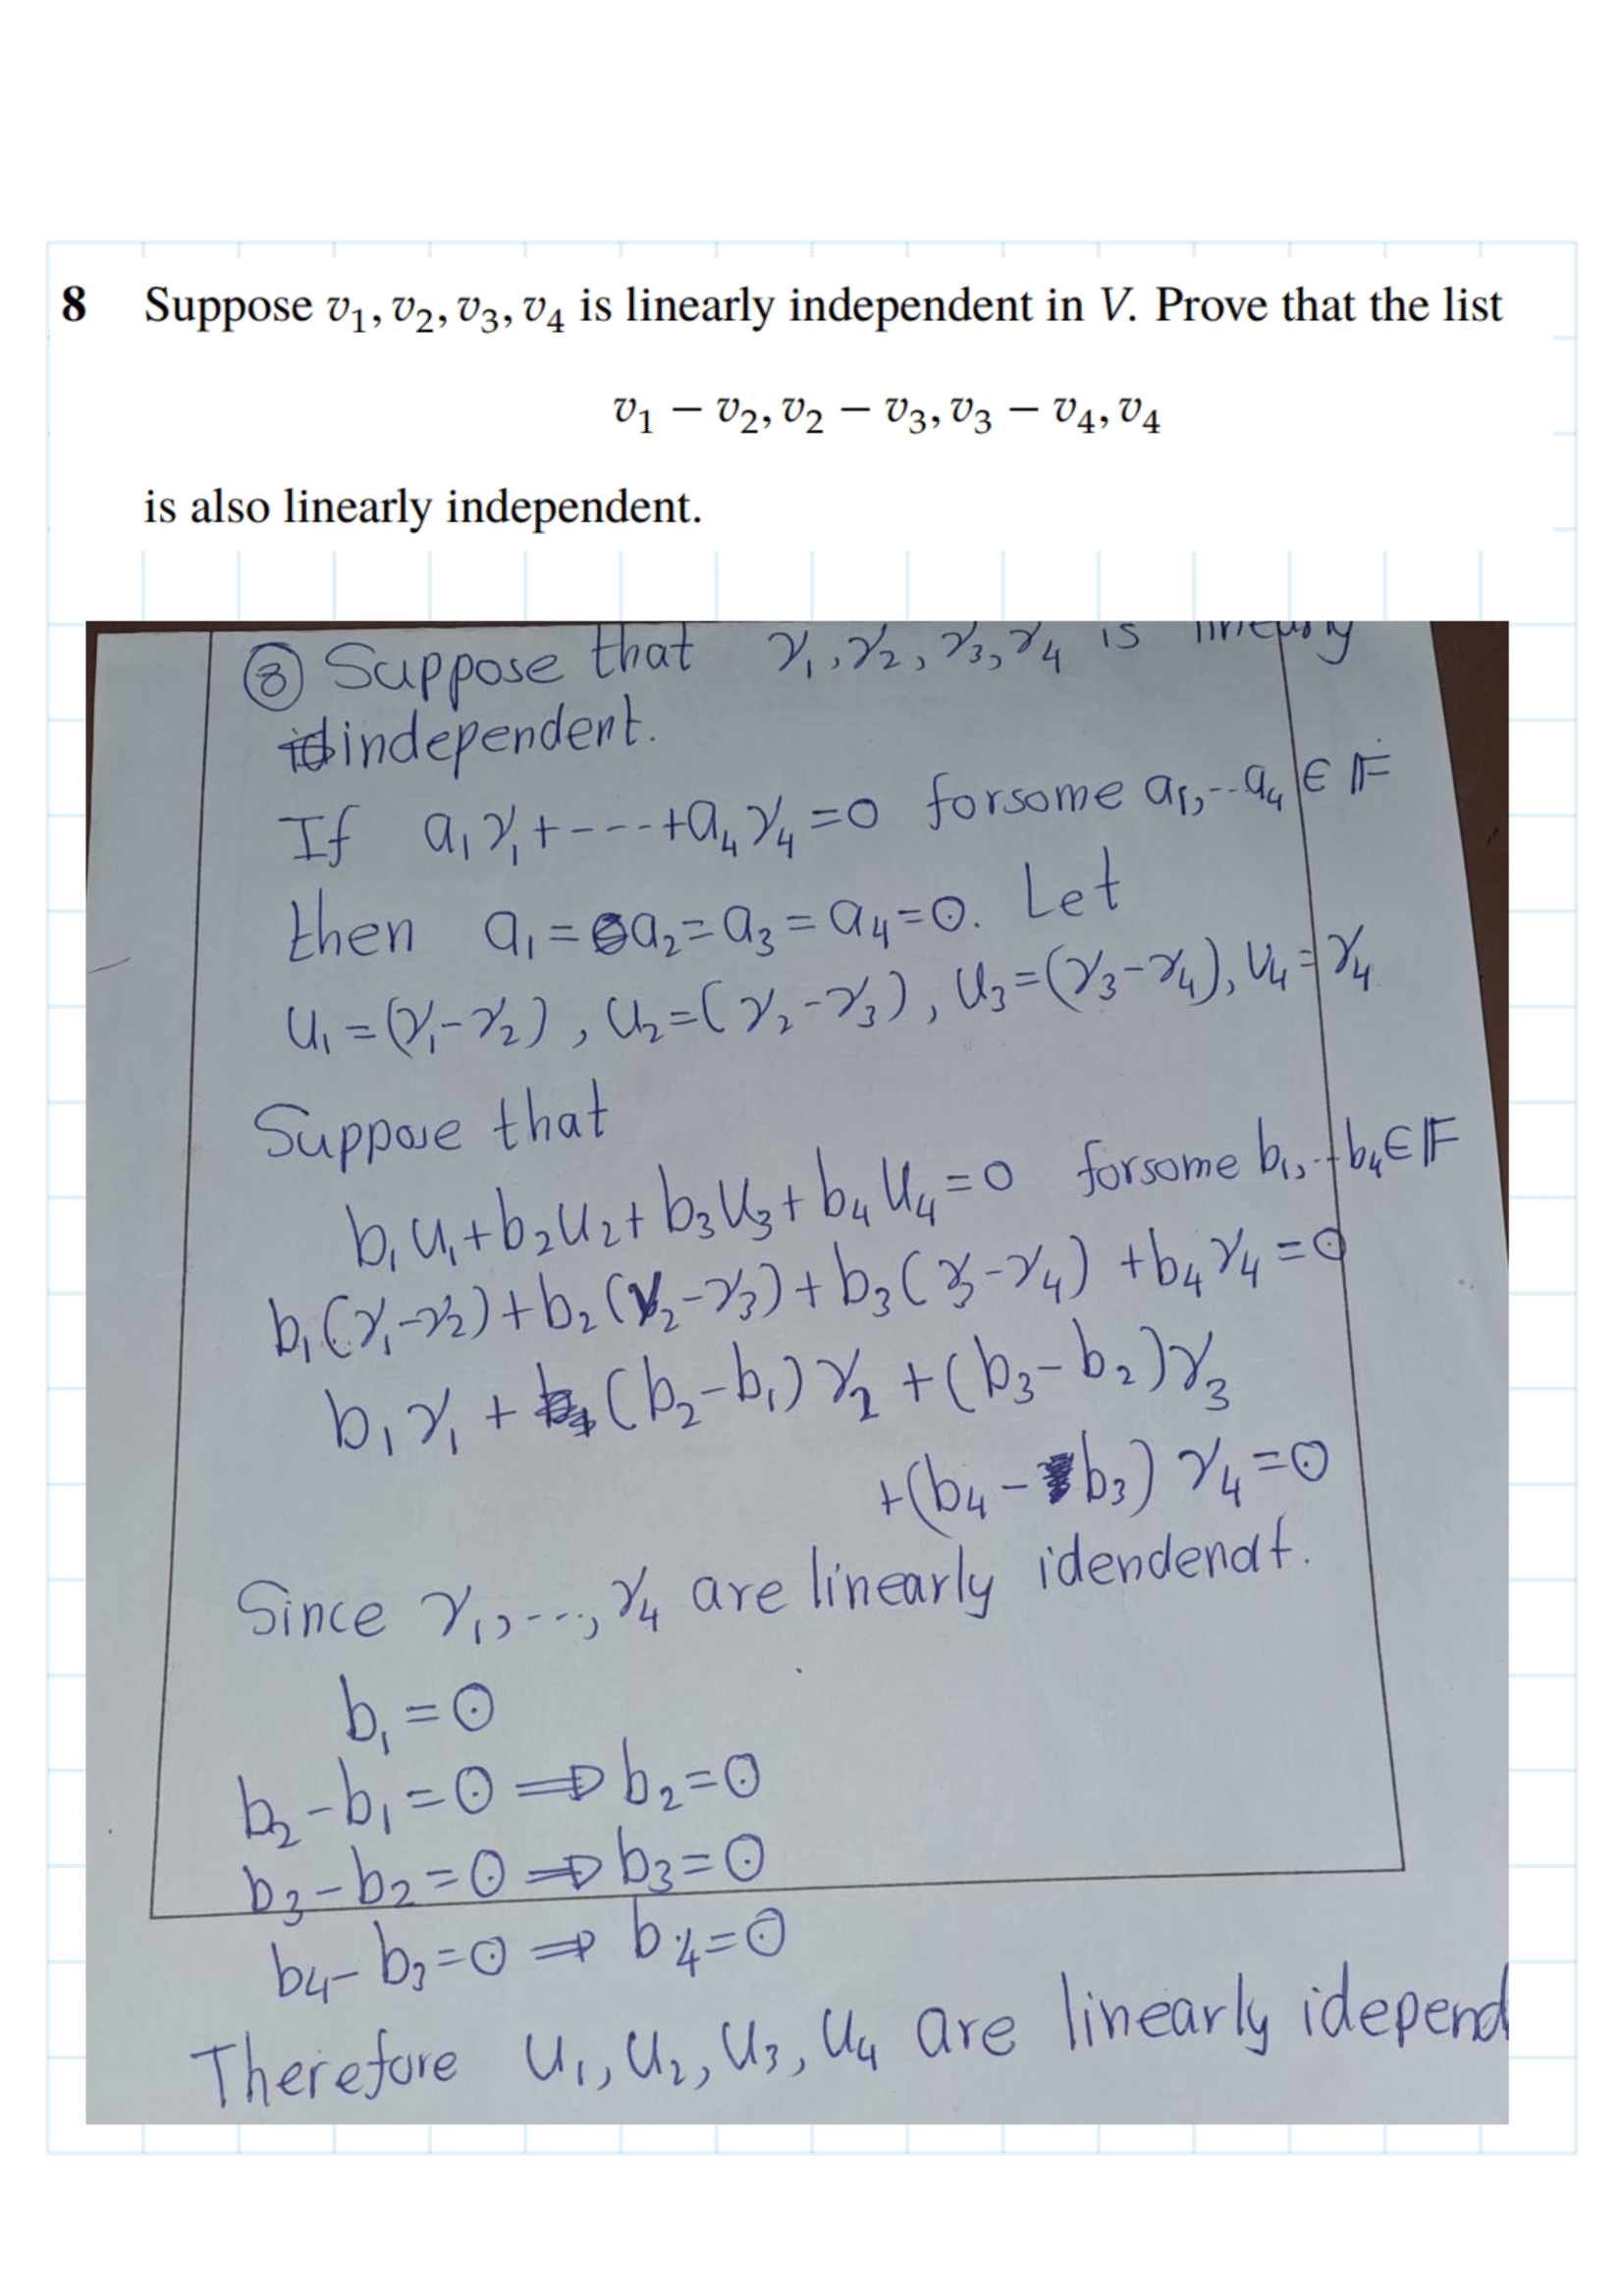 8 Suppose v₁, v₂, v₃, v₄ is linearly independent in V. Prove that the list
v₁ − v₂, v₂ − v₃, v₃ − v₄, v₄
is also linearly independent.
⑧ Suppose that v₁, v₂, v₃, v₄ is linearly
independent.
If a₁v₁+----+a₄v₄=0 forsome a₁,--a₄ ∈ 𝔽
then a₁=a₂=a₃=a₄=0. Let
u₁=(v₁-v₂), u₂=(v₂-v₃), u₃=(v₃-v₄), u₄=v₄
Suppose that
b₁u₁+b₂u₂+b₃u₃+b₄u₄=0 forsome b₁,--b₄∈𝔽
b₁(v₁-v₂)+b₂(v₂-v₃)+b₃(v₃-v₄)+b₄v₄=0
b₁v₁+(b₂-b₁)v₂+(b₃-b₂)v₃
+(b₄-b₃)v₄=0
Since v₁,---,v₄ are linearly idendendt.
b₁=0
b₂-b₁=0 ⇒ b₂=0
b₃-b₂=0 ⇒ b₃=0
b₄-b₃=0 ⇒ b₄=0
Therefore u₁, u₂, u₃, u₄ are linearly idepend